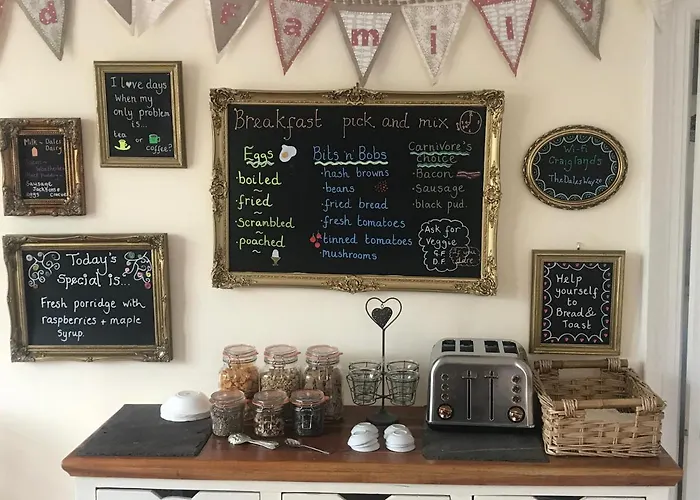 d
F a m i l y
I ♥ve days
when my
only problem
is...
tea or coffee?
Milk ~ Dales
Dairy
Sausage
Jacksons
Eggs
Today's
Special is...
Fresh porridge with
raspberries + maple
syrup.
Breakfast pick and mix
Eggs
·boiled
~
·fried
~
·scrambled
~
·poached
~
Bits 'n' Bobs
·hash browns
·beans
·fried bread
·fresh tomatoes
·tinned tomatoes
·mushrooms
Carnivore's
Choice
·Bacon
·Sausage
·black pud.
Ask for
Veggie
G.F.
D.F.
if you
dare
Wi-Fi
Craiglands
TheDalesWay20
Help
yourself
to
Bread &
Toast